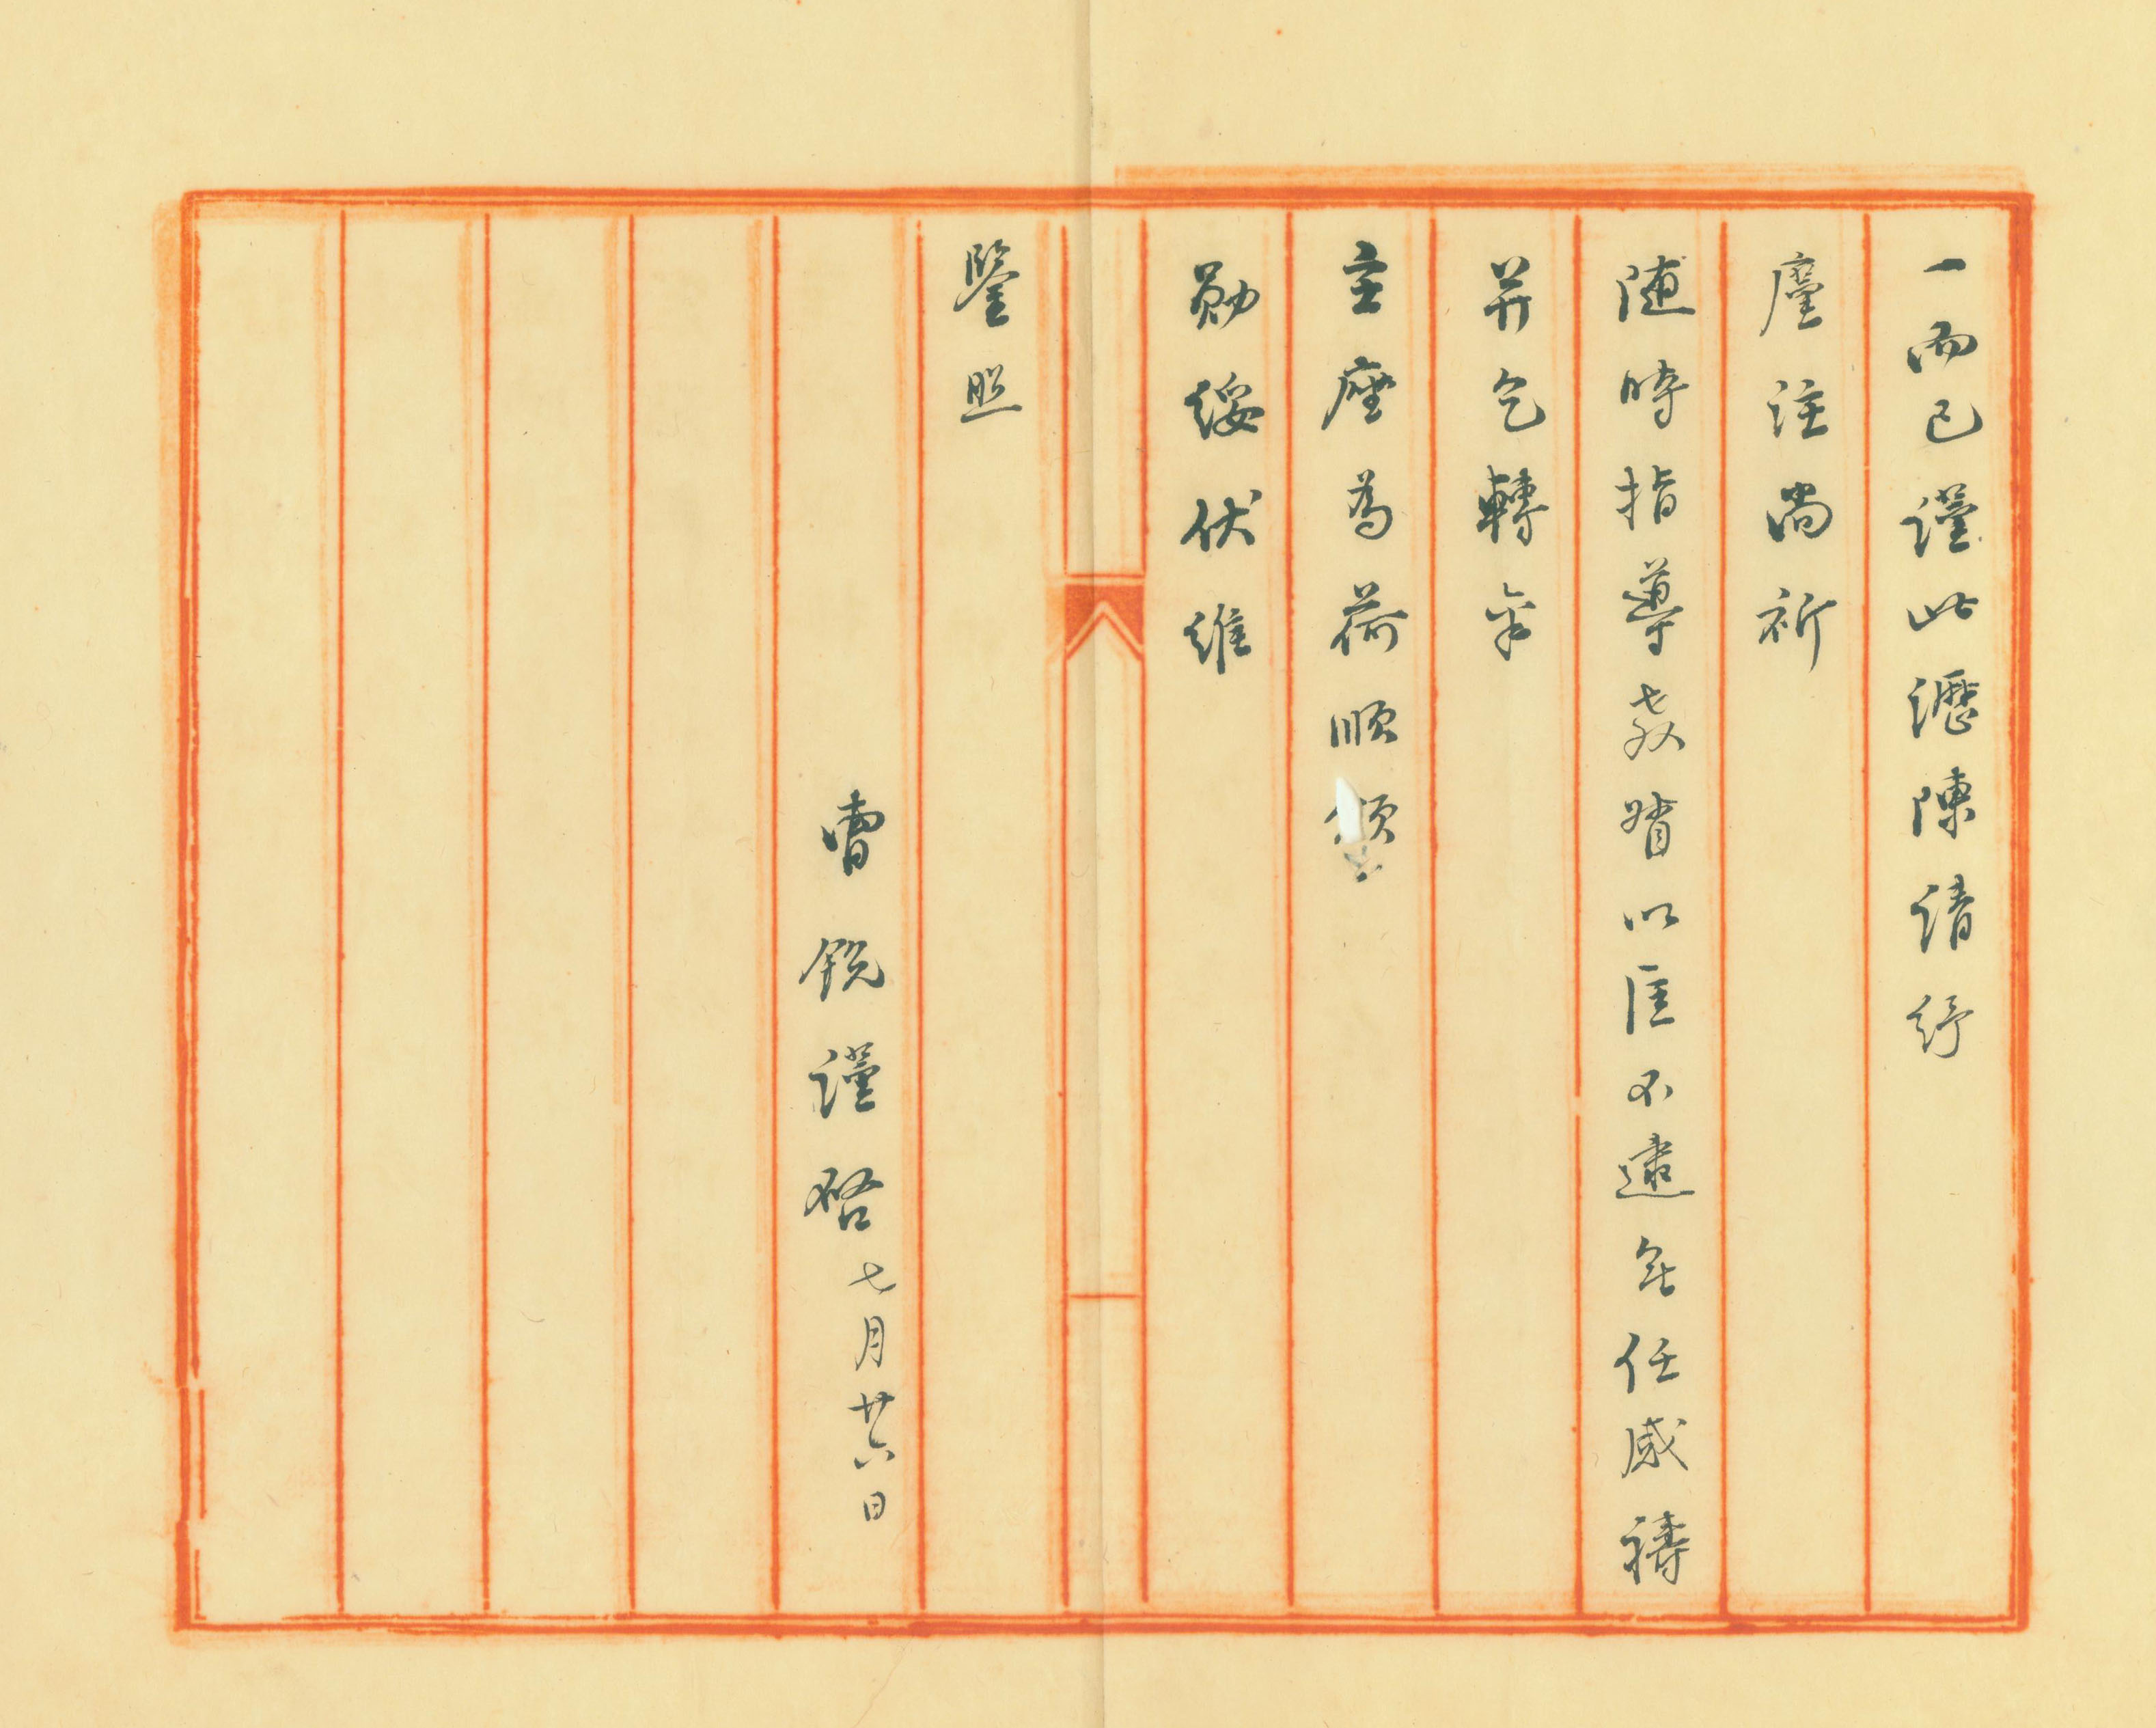 一而已謹此瀝陳請紓
廑注尚祈
随時指導教督以匡不逮無任感禱
并乞轉呈
主座為荷順頌
勛綏伏維
鑒照
曹銳謹啓七月廿六日